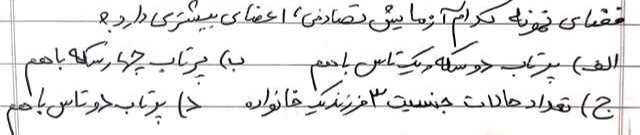 فضای نمونه کدام آزمایش تصادفی، اعضای بیشتری دارد؟
الف) پرتاب دو سکه و یک تاس باهم ب) پرتاب چهار سکه باهم
ج) تعداد حالات جنسیت ۳ فرزند یک خانواده د) پرتاب دو تاس باهم